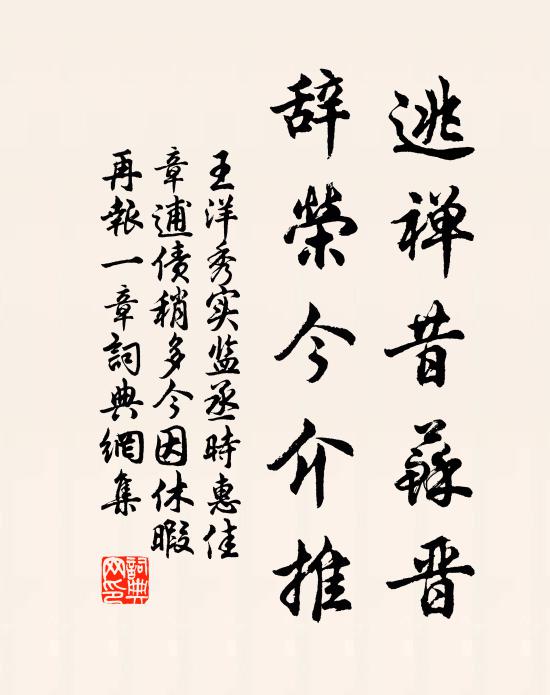 逃禅昔蘇晋
辞榮今介推
王洋秀实监丞時惠佳
章逋债稍多今因休暇
再報一章詞典網集
詞典网印